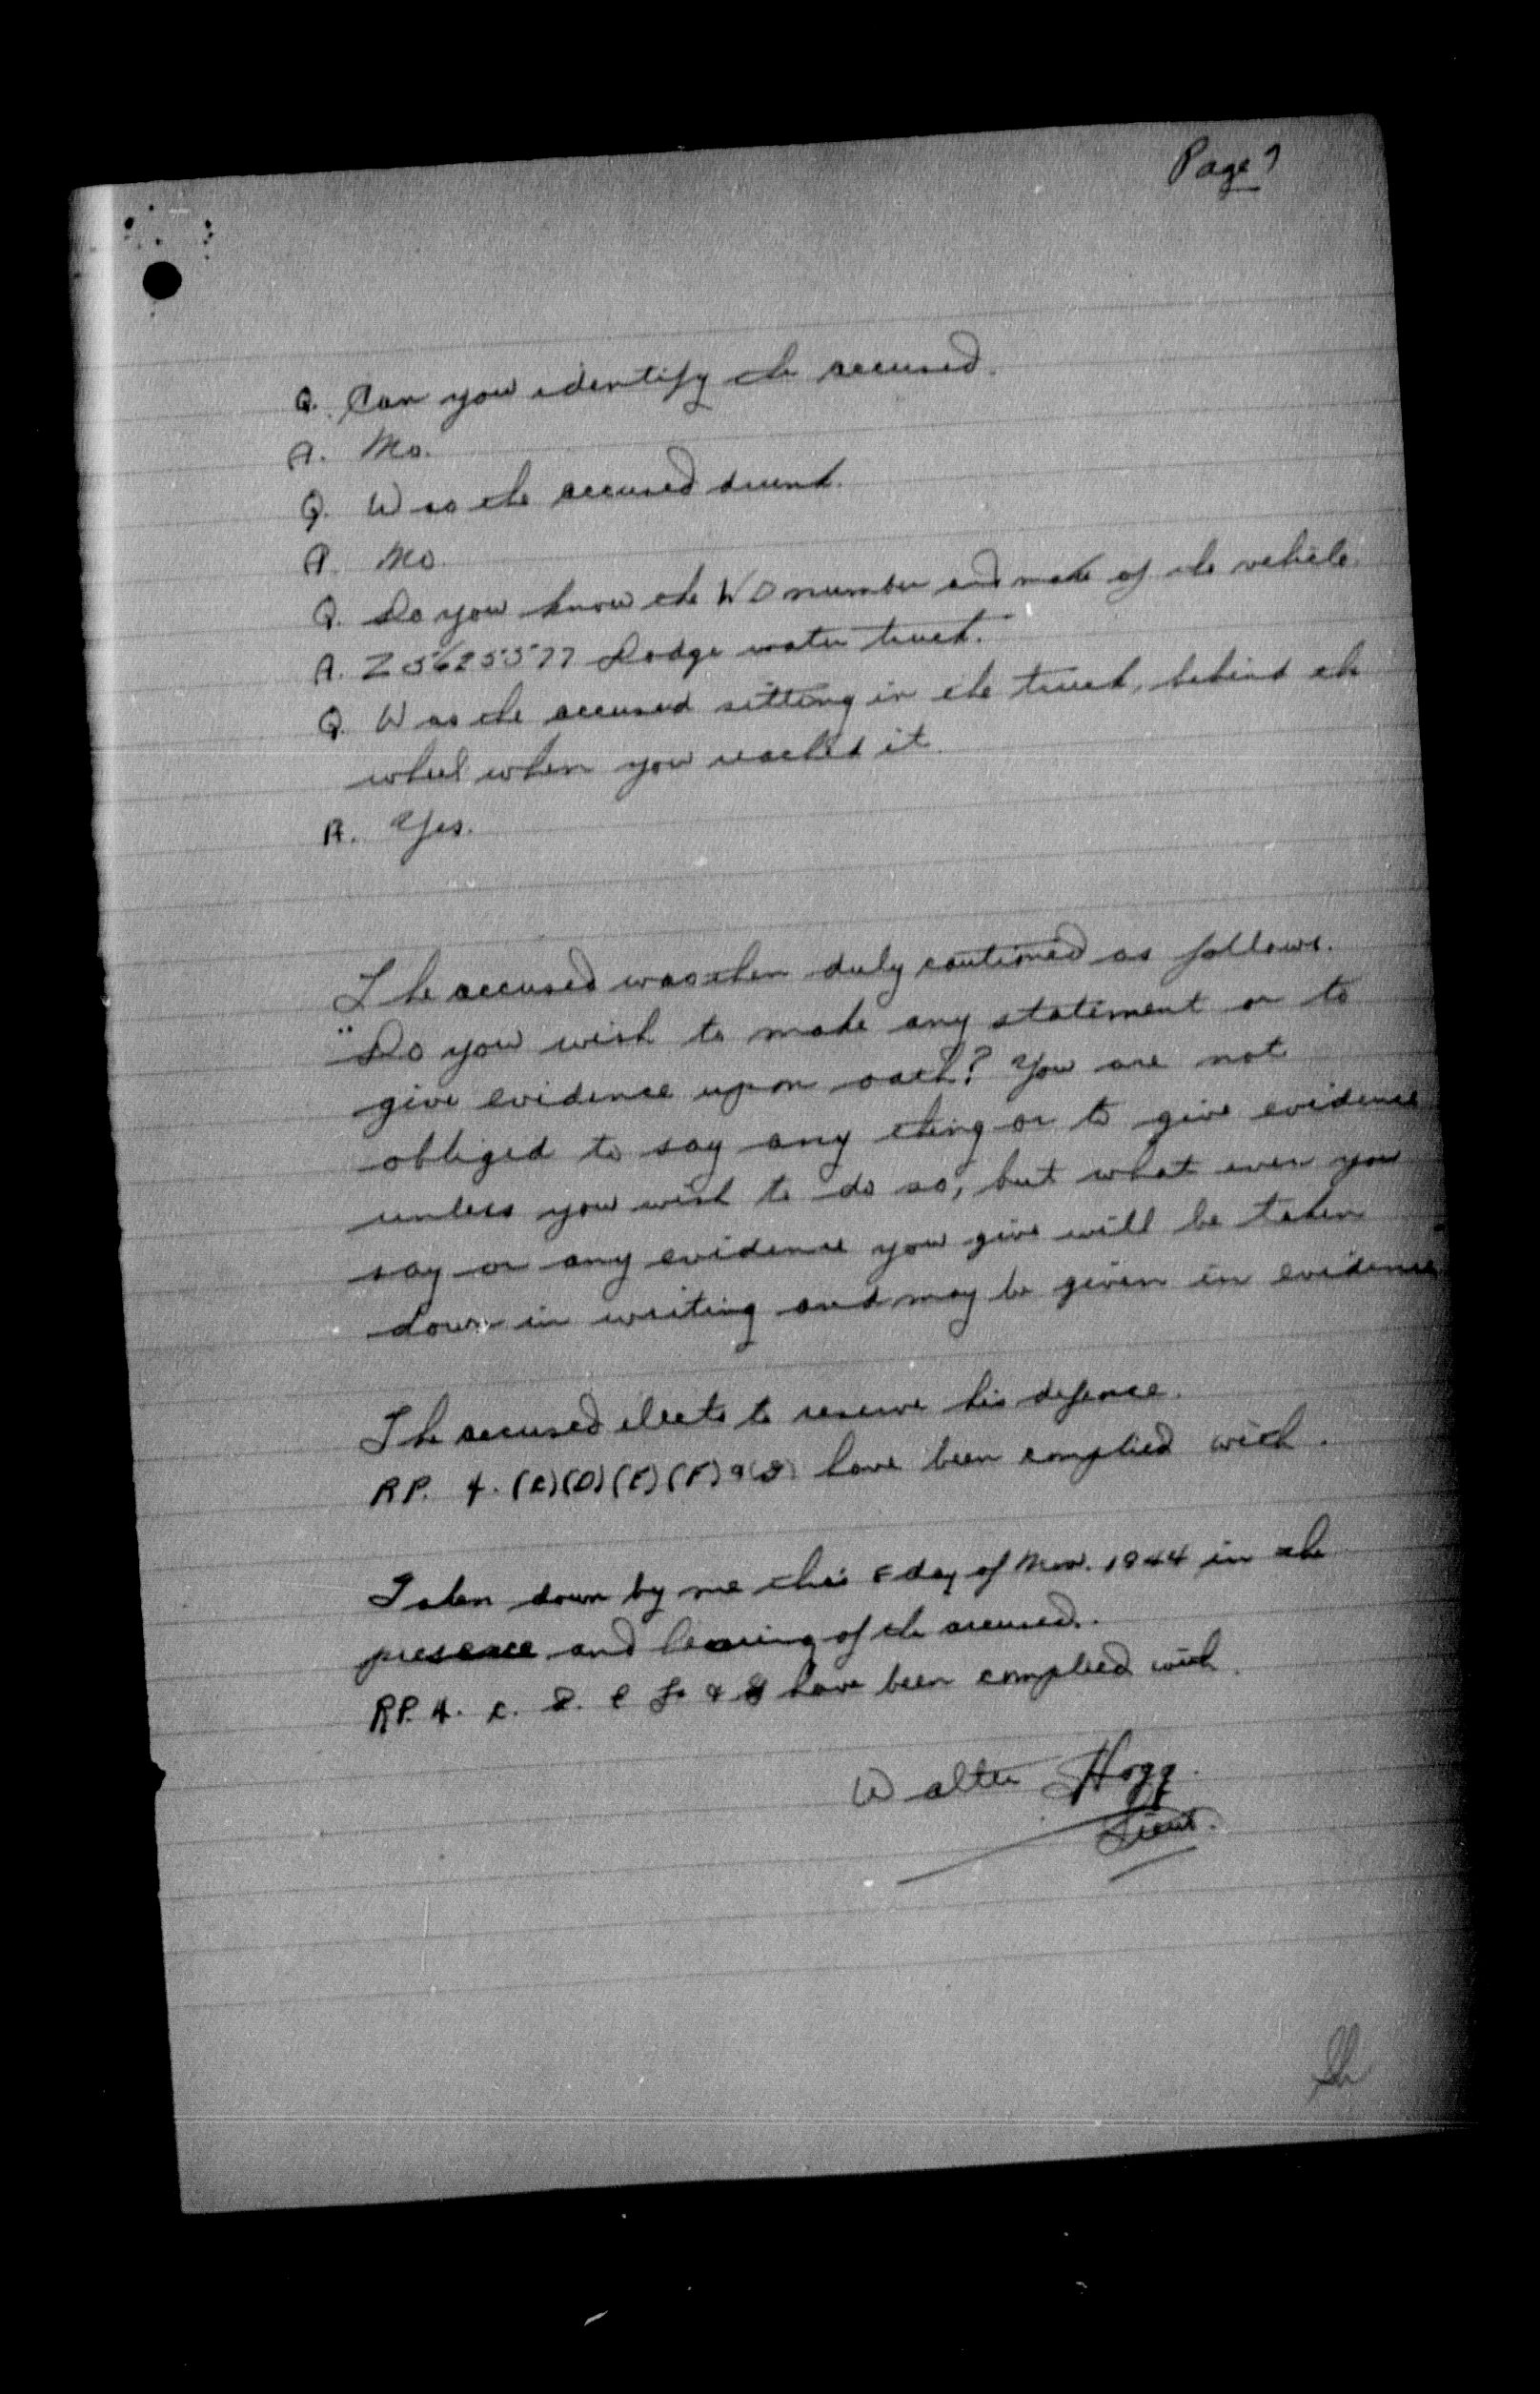 Page 7
Q. Can you identify the accused.
A. No.
Q. Was the accused drunk.
A. No
Q. Do you know the WD number and make of the vehicle.
A. Z 5625577 Dodge water truck.
Q. Was the accused sitting in the truck, behind the
wheel when you reached it.
A. Yes.
The accused was then duly cautioned as follows.
"Do you wish to make any statement or to
give evidence upon oath? You are not
obliged to say any thing or to give evidence
unless you wish to do so, but what ever you
say or any evidence you give will be taken
down in writing and may be given in evidence
The accused elects to reserve his defence.
RP. 4. (C)(D)(E)(F) & (G) have been complied with.
Taken down by me this day of Nov. 1944 in the
presence and hearing of the accused.
RP. 4. C. D. E F. & G have been complied with.
Walter Hogg.
Lieut.